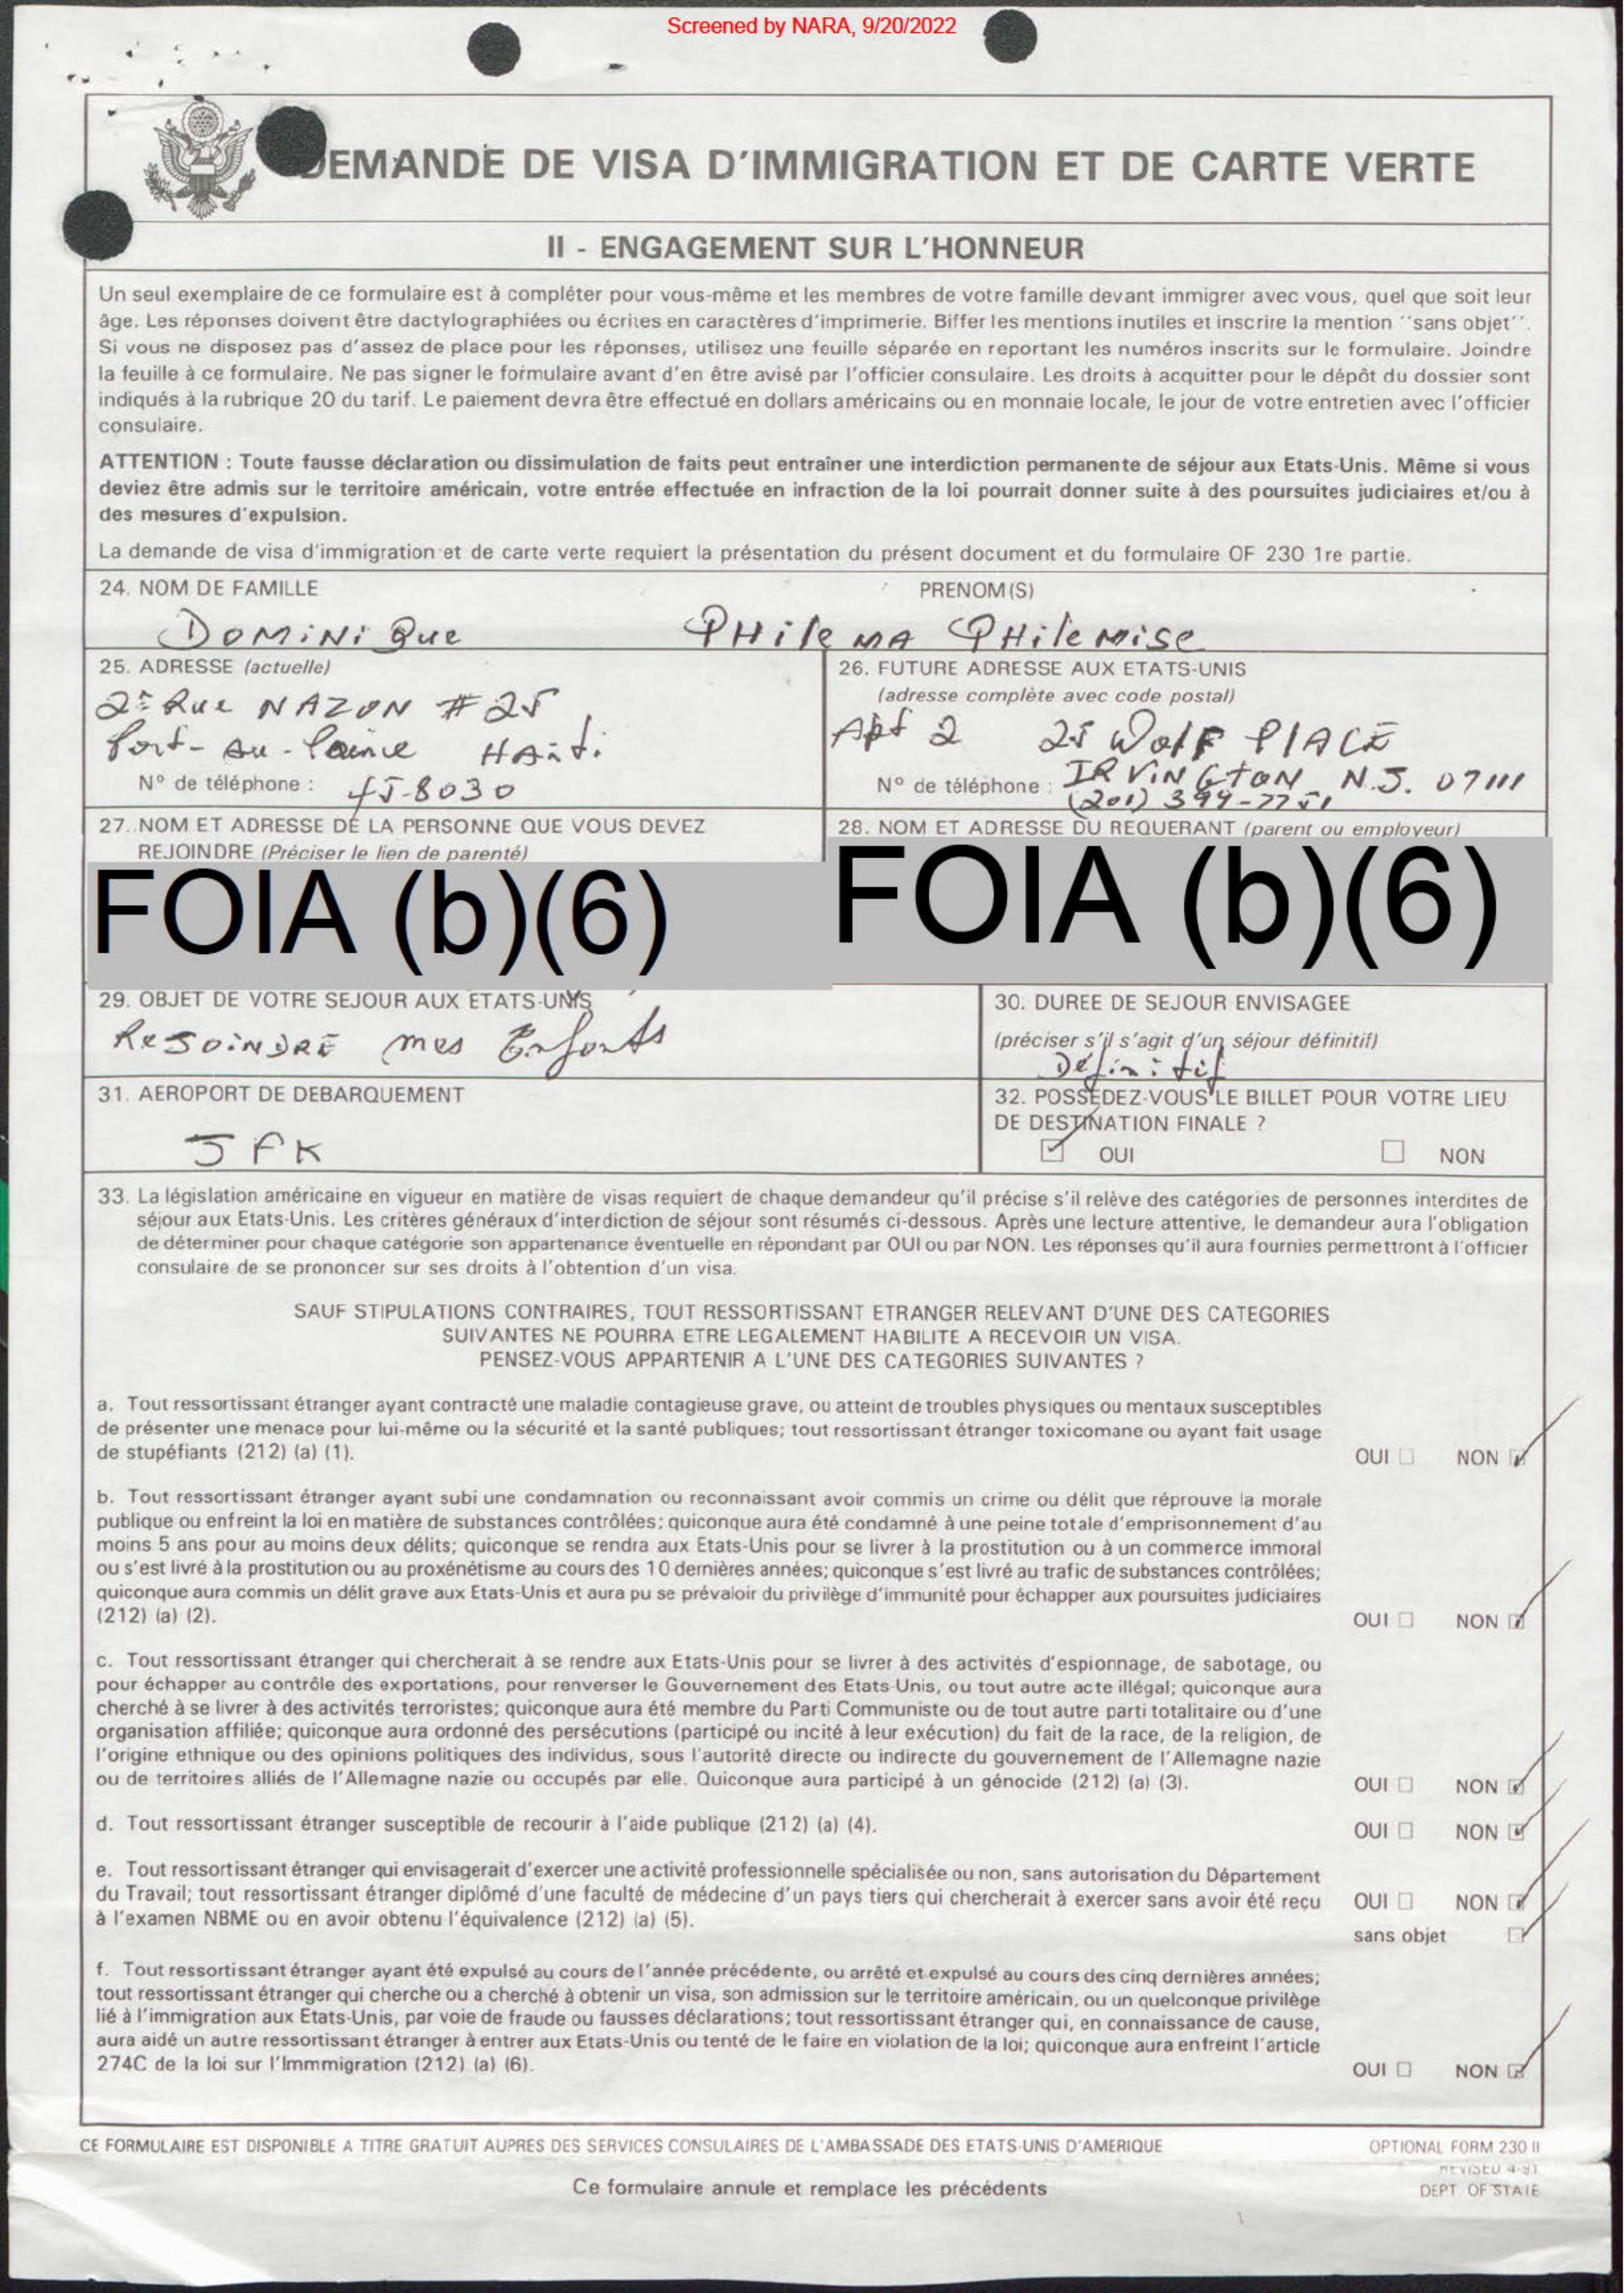 Screened by NARA, 9/20/2022
DEMANDE DE VISA D'IMMIGRATION ET DE CARTE VERTE
II - ENGAGEMENT SUR L'HONNEUR
Un seul exemplaire de ce formulaire est à compléter pour vous-même et les membres de votre famille devant immigrer avec vous, quel que soit leur
âge. Les réponses doivent être dactylographiées ou écrites en caractères d'imprimerie. Biffer les mentions inutiles et inscrire la mention ''sans objet''.
Si vous ne disposez pas d'assez de place pour les réponses, utilisez une feuille séparée en reportant les numéros inscrits sur le formulaire. Joindre
la feuille à ce formulaire. Ne pas signer le formulaire avant d'en être avisé par l'officier consulaire. Les droits à acquitter pour le dépôt du dossier sont
indiqués à la rubrique 20 du tarif. Le paiement devra être effectué en dollars américains ou en monnaie locale, le jour de votre entretien avec l'officier
consulaire.
ATTENTION : Toute fausse déclaration ou dissimulation de faits peut entraîner une interdiction permanente de séjour aux Etats-Unis. Même si vous
deviez être admis sur le territoire américain, votre entrée effectuée en infraction de la loi pourrait donner suite à des poursuites judiciaires et/ou à
des mesures d'expulsion.
La demande de visa d'immigration et de carte verte requiert la présentation du présent document et du formulaire OF 230 1re partie.
24. NOM DE FAMILLE PRENOM(S)
DOMiNiQue PHileMA PHileMise
25. ADRESSE (actuelle)
2e Rue NAZON # 25
Port-au-Prince HAiti
N° de téléphone : 45-8030
26. FUTURE ADRESSE AUX ETATS-UNIS
(adresse complète avec code postal)
Apt 2 25 WolF PlACE
IRVINGTON N.J. 07111
N° de téléphone : (201) 399-7751
27. NOM ET ADRESSE DE LA PERSONNE QUE VOUS DEVEZ
REJOINDRE (Préciser le lien de parenté)
FOIA (b)(6)
28. NOM ET ADRESSE DU REQUERANT (parent ou employeur)
FOIA (b)(6)
29. OBJET DE VOTRE SEJOUR AUX ETATS-UNIS
ReJOiNDRE mes Enfants
30. DUREE DE SEJOUR ENVISAGEE
(préciser s'il s'agit d'un séjour définitif)
Définitif
31. AEROPORT DE DEBARQUEMENT
JFK
32. POSSEDEZ-VOUS LE BILLET POUR VOTRE LIEU
DE DESTINATION FINALE ?
OUI NON
33. La législation américaine en vigueur en matière de visas requiert de chaque demandeur qu'il précise s'il relève des catégories de personnes interdites de
séjour aux Etats-Unis. Les critères généraux d'interdiction de séjour sont résumés ci-dessous. Après une lecture attentive, le demandeur aura l'obligation
de déterminer pour chaque catégorie son appartenance éventuelle en répondant par OUI ou par NON. Les réponses qu'il aura fournies permettront à l'officier
consulaire de se prononcer sur ses droits à l'obtention d'un visa.
SAUF STIPULATIONS CONTRAIRES, TOUT RESSORTISSANT ETRANGER RELEVANT D'UNE DES CATEGORIES
SUIVANTES NE POURRA ETRE LEGALEMENT HABILITE A RECEVOIR UN VISA.
PENSEZ-VOUS APPARTENIR A L'UNE DES CATEGORIES SUIVANTES ?
a. Tout ressortissant étranger ayant contracté une maladie contagieuse grave, ou atteint de troubles physiques ou mentaux susceptibles
de présenter une menace pour lui-même ou la sécurité et la santé publiques; tout ressortissant étranger toxicomane ou ayant fait usage
de stupéfiants (212) (a) (1). OUI NON
b. Tout ressortissant étranger ayant subi une condamnation ou reconnaissant avoir commis un crime ou délit que réprouve la morale
publique ou enfreint la loi en matière de substances contrôlées; quiconque aura été condamné à une peine totale d'emprisonnement d'au
moins 5 ans pour au moins deux délits; quiconque se rendra aux Etats-Unis pour se livrer à la prostitution ou à un commerce immoral
ou s'est livré à la prostitution ou au proxénétisme au cours des 10 dernières années; quiconque s'est livré au trafic de substances contrôlées;
quiconque aura commis un délit grave aux Etats-Unis et aura pu se prévaloir du privilège d'immunité pour échapper aux poursuites judiciaires
(212) (a) (2). OUI NON
c. Tout ressortissant étranger qui chercherait à se rendre aux Etats-Unis pour se livrer à des activités d'espionnage, de sabotage, ou
pour échapper au contrôle des exportations, pour renverser le Gouvernement des Etats-Unis, ou tout autre acte illégal; quiconque aura
cherché à se livrer à des activités terroristes; quiconque aura été membre du Parti Communiste ou de tout autre parti totalitaire ou d'une
organisation affiliée; quiconque aura ordonné des persécutions (participé ou incité à leur exécution) du fait de la race, de la religion, de
l'origine ethnique ou des opinions politiques des individus, sous l'autorité directe ou indirecte du gouvernement de l'Allemagne nazie
ou de territoires alliés de l'Allemagne nazie ou occupés par elle. Quiconque aura participé à un génocide (212) (a) (3). OUI NON
d. Tout ressortissant étranger susceptible de recourir à l'aide publique (212) (a) (4). OUI NON
e. Tout ressortissant étranger qui envisagerait d'exercer une activité professionnelle spécialisée ou non, sans autorisation du Département
du Travail; tout ressortissant étranger diplômé d'une faculté de médecine d'un pays tiers qui chercherait à exercer sans avoir été reçu OUI NON
à l'examen NBME ou en avoir obtenu l'équivalence (212) (a) (5).
sans objet
f. Tout ressortissant étranger ayant été expulsé au cours de l'année précédente, ou arrêté et expulsé au cours des cinq dernières années;
tout ressortissant étranger qui cherche ou a cherché à obtenir un visa, son admission sur le territoire américain, ou un quelconque privilège
lié à l'immigration aux Etats-Unis, par voie de fraude ou fausses déclarations; tout ressortissant étranger qui, en connaissance de cause,
aura aidé un autre ressortissant étranger à entrer aux Etats-Unis ou tenté de le faire en violation de la loi; quiconque aura enfreint l'article
274C de la loi sur l'Immmigration (212) (a) (6). OUI NON
CE FORMULAIRE EST DISPONIBLE A TITRE GRATUIT AUPRES DES SERVICES CONSULAIRES DE L'AMBASSADE DES ETATS-UNIS D'AMERIQUE
OPTIONAL FORM 230 II
REVISED 4-91
DEPT. OF STATE
Ce formulaire annule et remplace les précédents